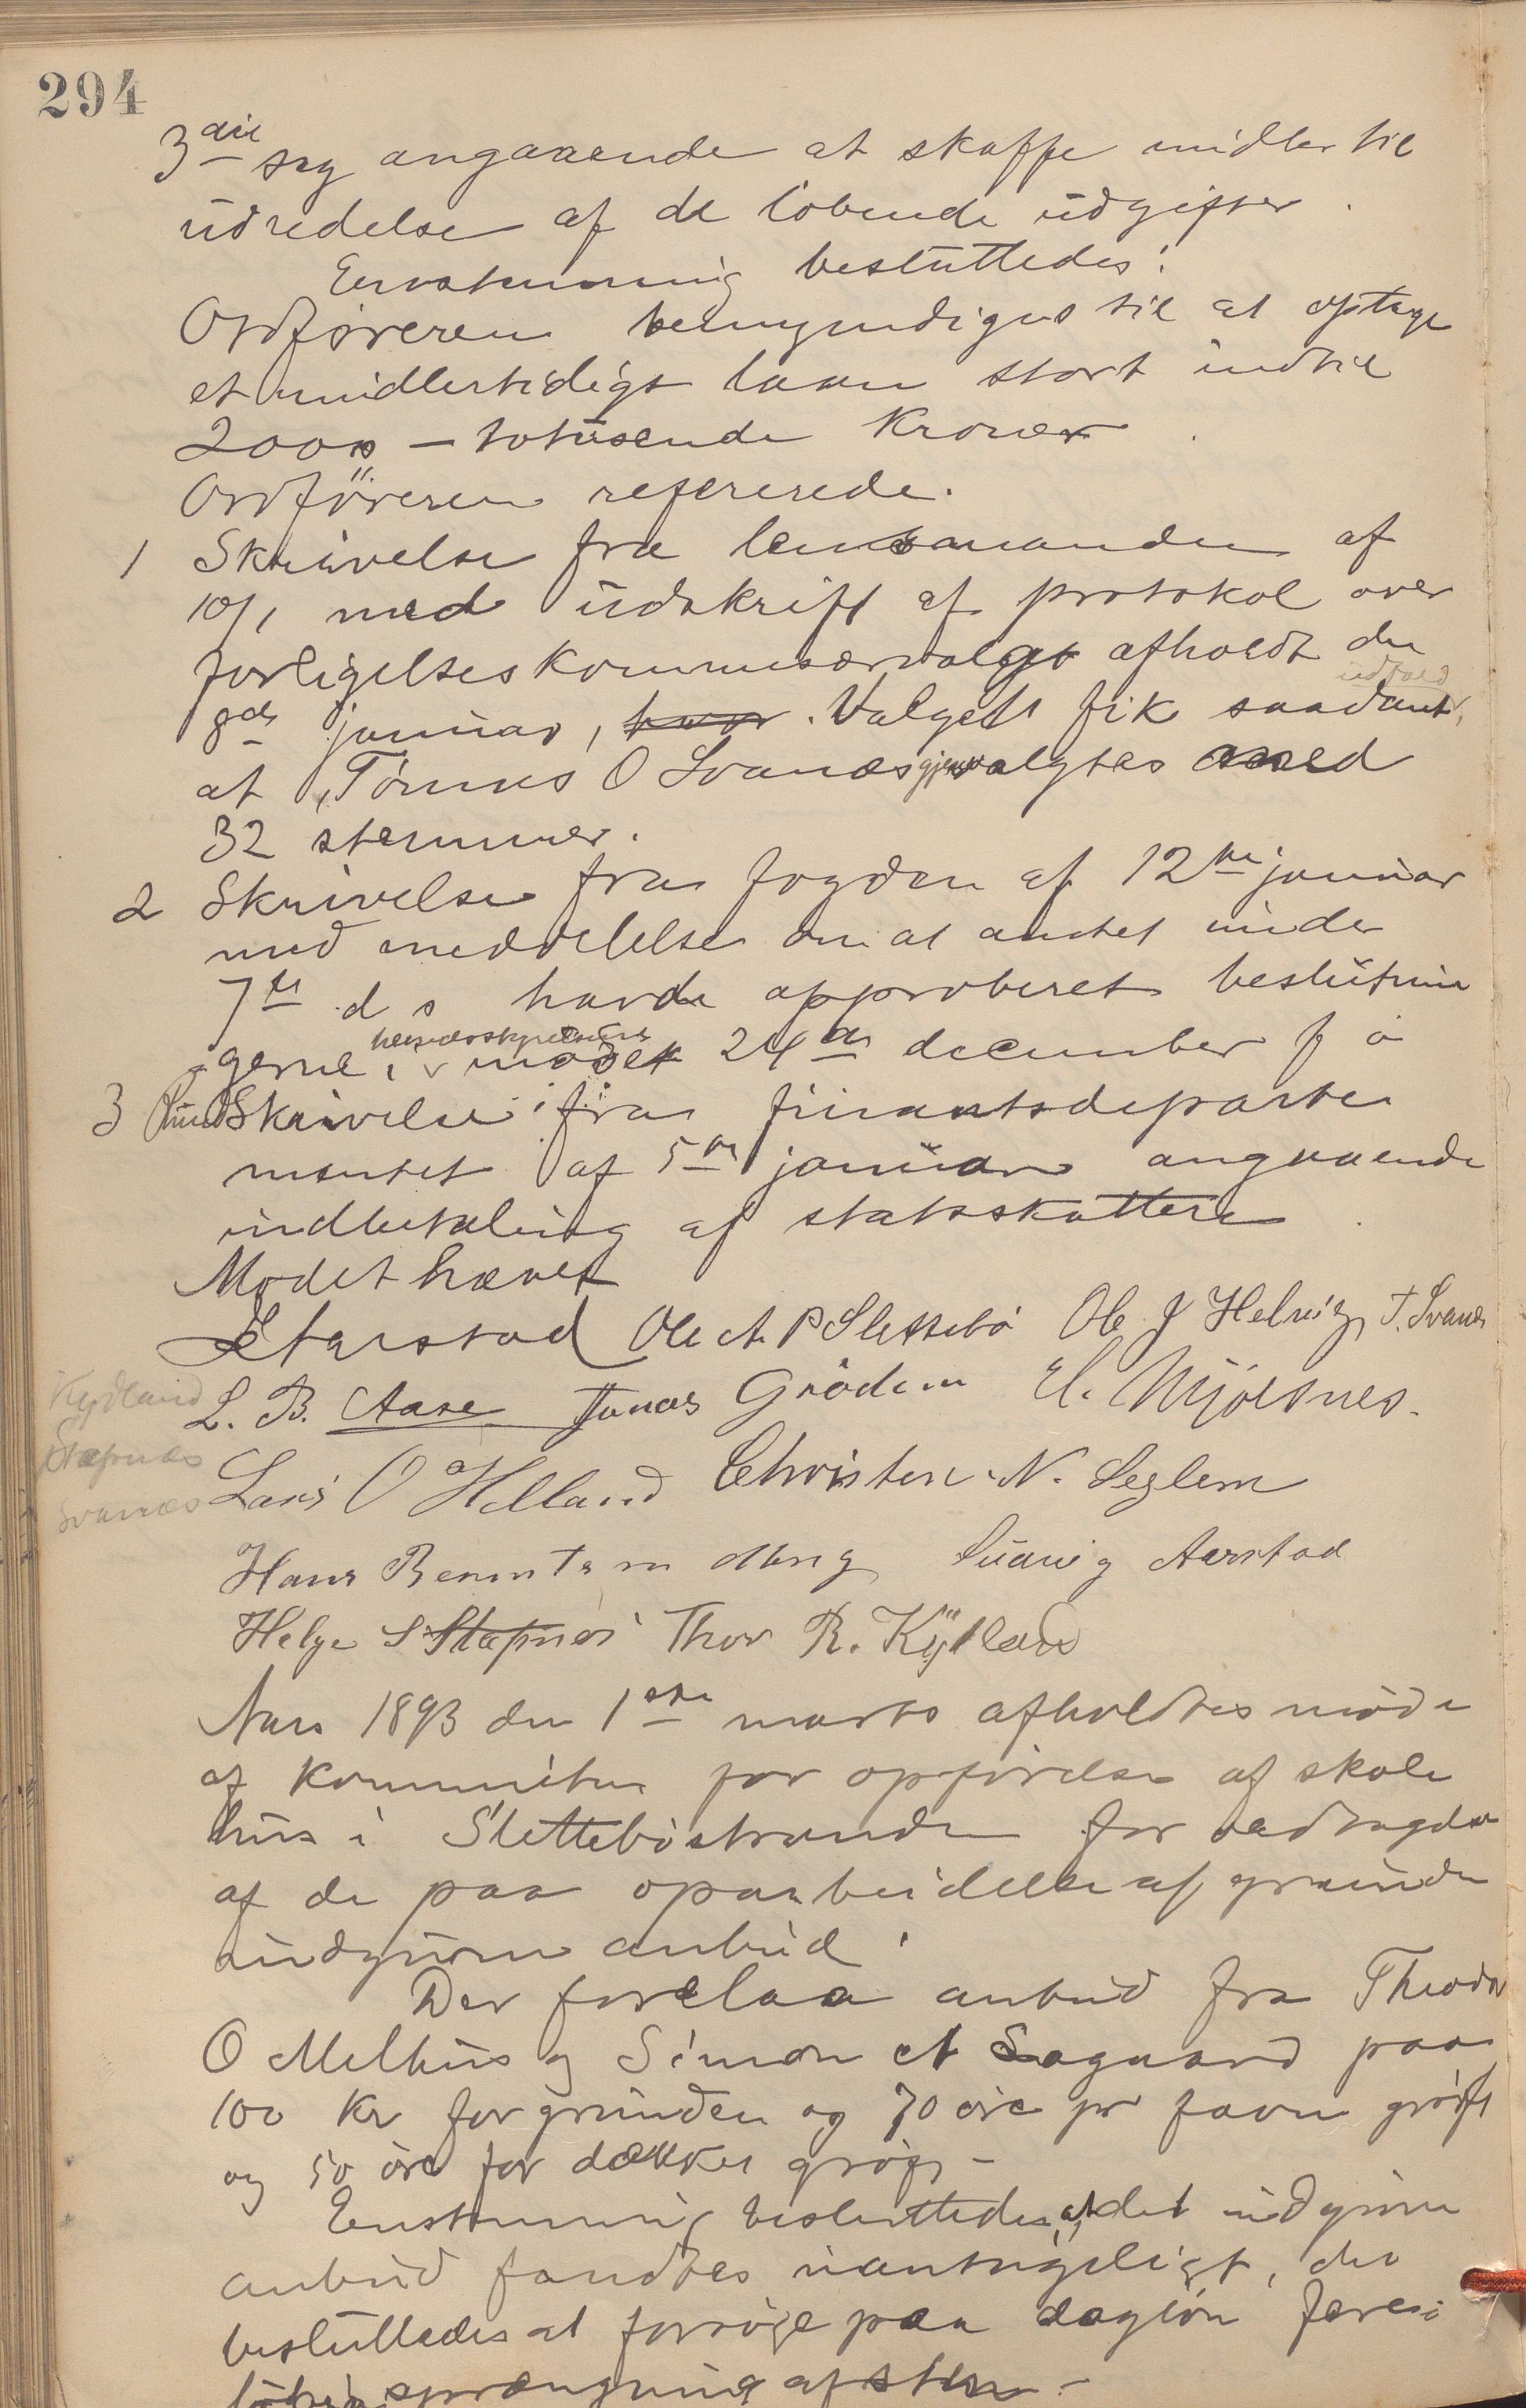 294
3die sag angaaende at skaffe midler til
udredelse af de løbende udgifter.
Enstemmig besluttedes:
Ordføreren bemyndiges til at optage
et midlertidigt laan stort indtil
2000 – totusende Kroner.
Ordføreren refererede.
1 Skrivelse fra lensmanden af
10/1 med udskrift af protokol over
forligelseskommisærvalget afholdt den
udfald
8de januar, hvor. Valget fik saadant,
at Tønnes O Svanæs gjenvalgtes med
32 stemmer.
2 Skrivelse fra fogden af 12te januar
med meddelelse om at amtet under
7de d s havde approberet beslutnin
herredsstyrelsens
gerne i mødet 24de december f a
3 Rund Skrivelse fra finantsdeparte
mentet af 5te januar angaaende
indbetaling af statsskatten.
Mødet hævet
Aarstad Ole A. P Slettebø Ole J Helvig T. Svanes
Kydland
L. B. Aase Jonas Grødem E. Mjølsnes.
Stapnæs
Svanæs
Lars O Helland Christen N. Seglem
Hans Berentsen Ludvig Aarstad
Helge S Stapnes Thor R. Kydland
Aar 1893 den 1ste marts afholdtes møde
af Kommiteen for opførelse af skole
hus i Slettebøstranden for
af de paa oparbeidelse af grunden
indgivne anbud.
Der forelaa anbud fra Theodor
O Melhus og Simon A Sagaard paa
100 Kr for grunden og 70 øre pr favn grøft
og 50 øre for dækket grøft –
Enstemmig besluttedes at det indgivne
anbud fandtes uantageligt, det
besluttedes at forsøge paa dagløn
sprængning af sten –